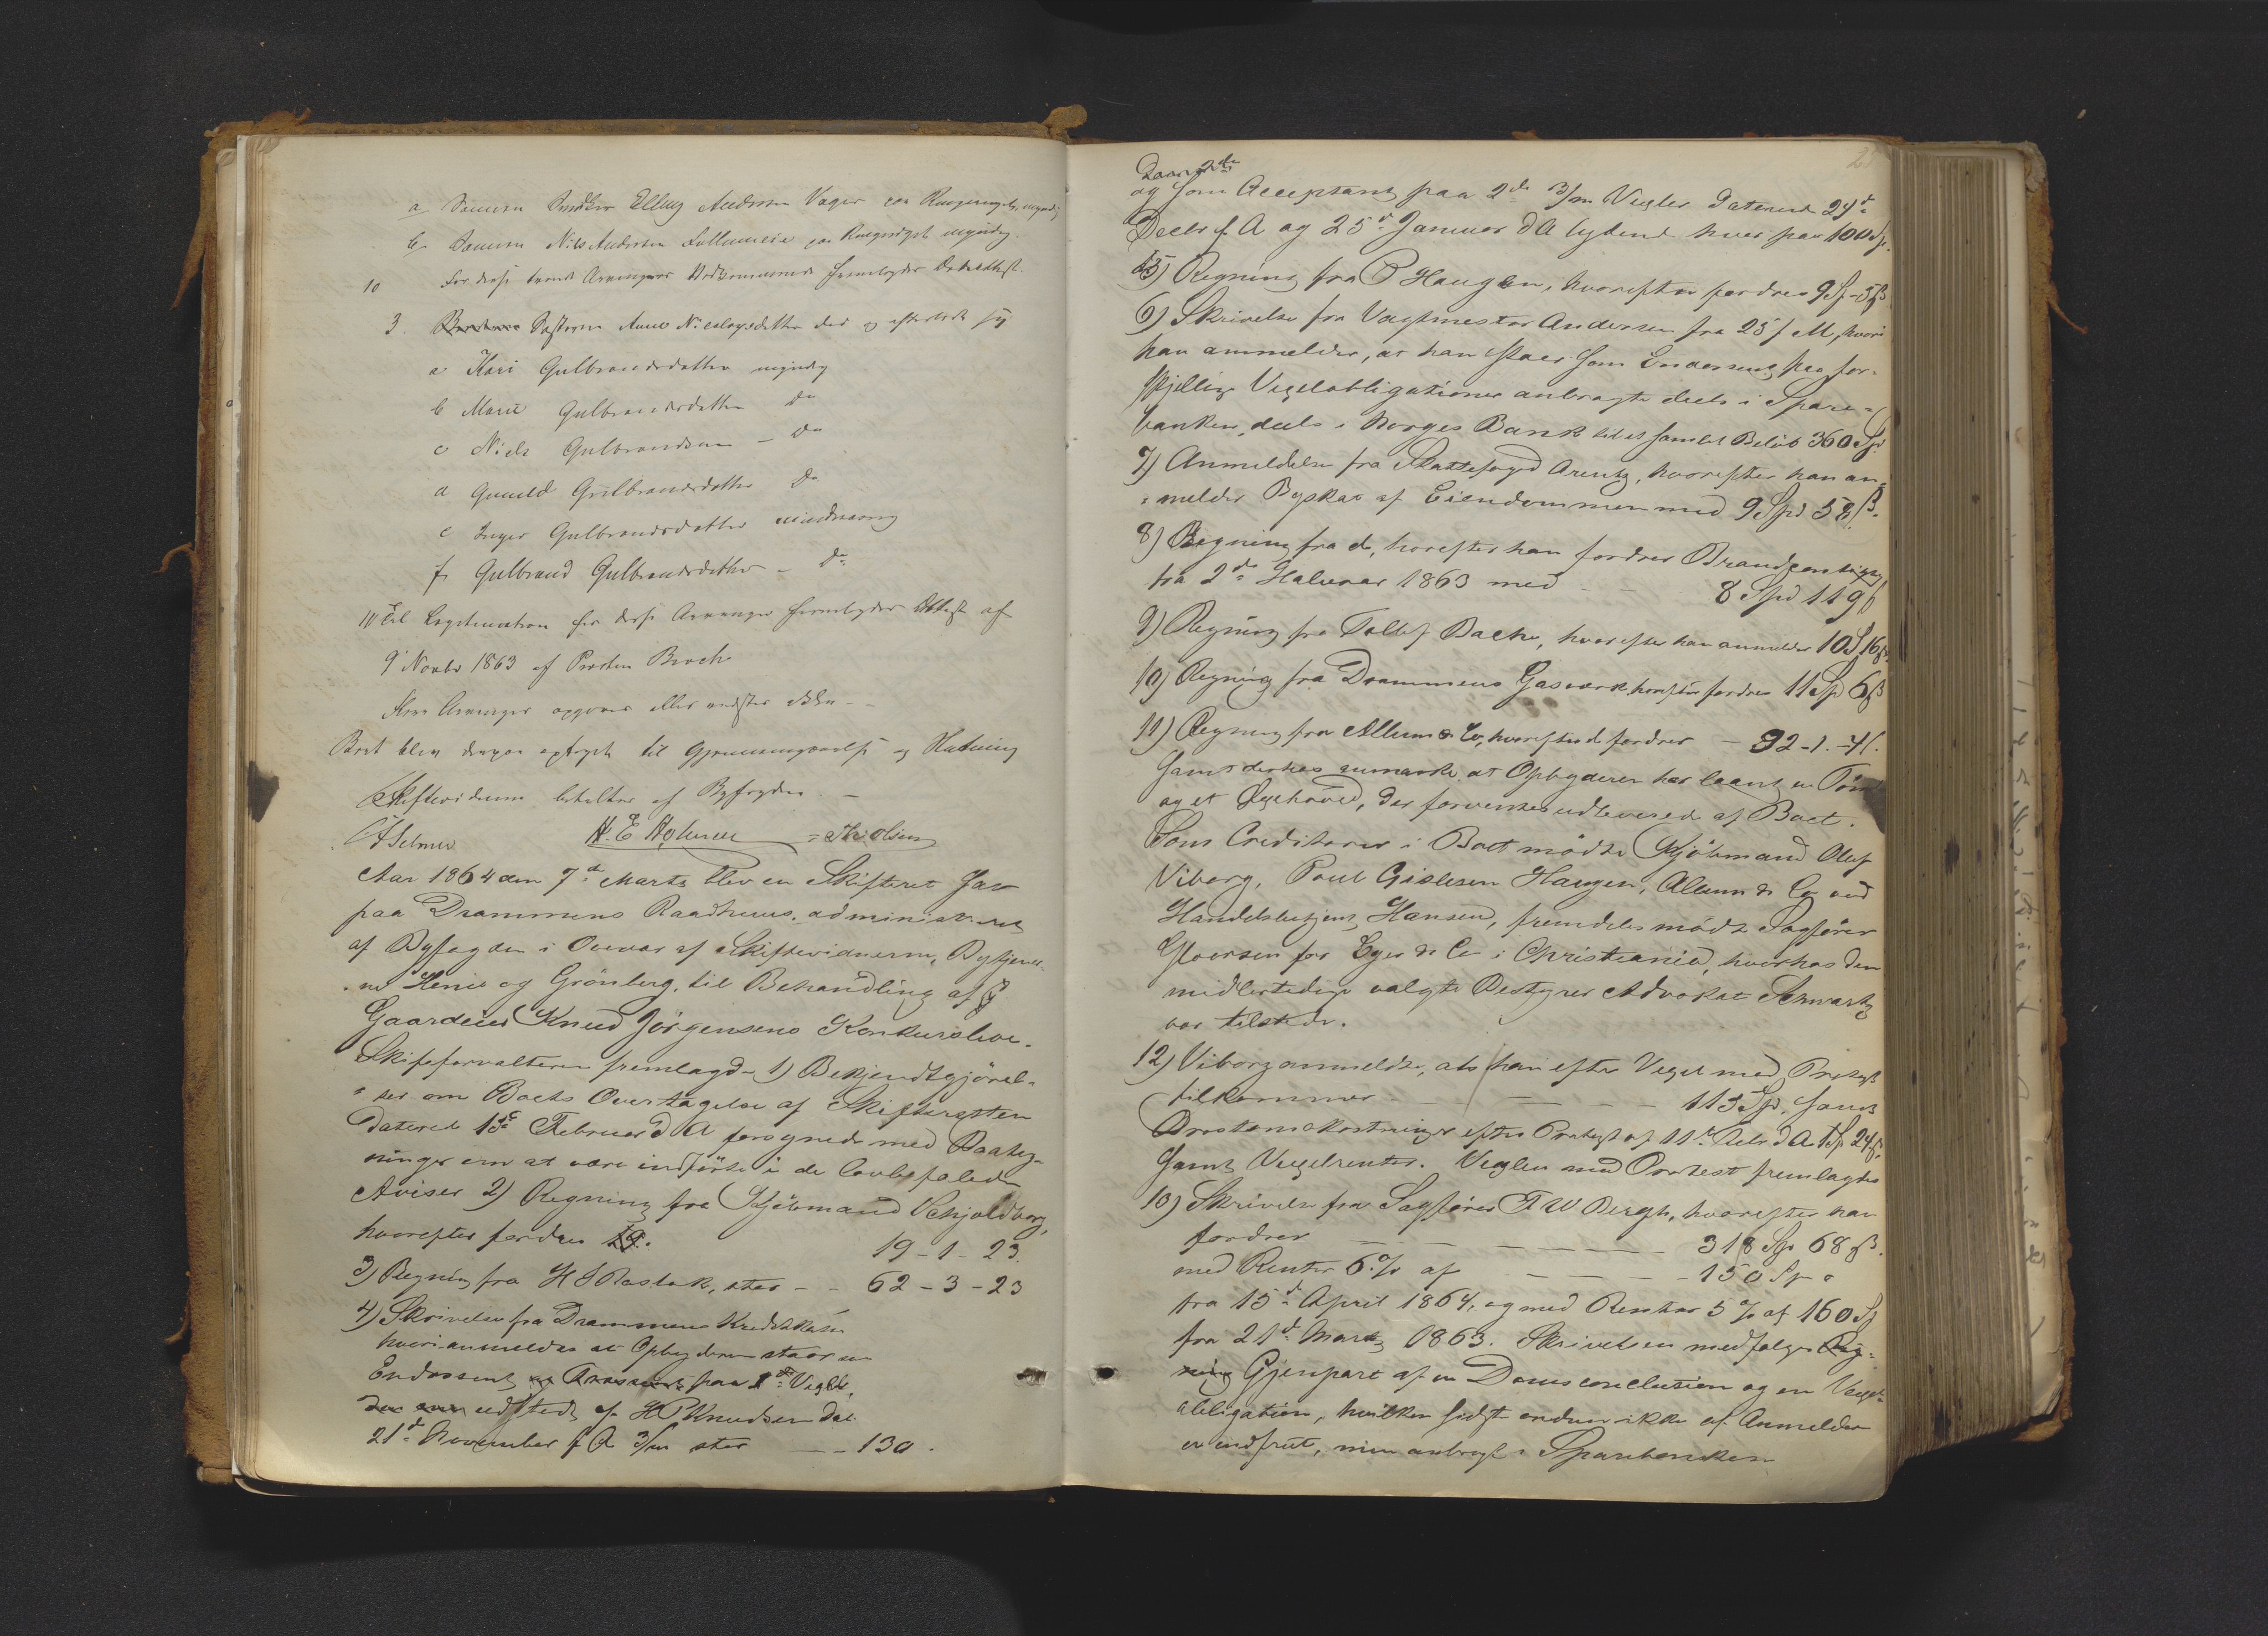 a Sønnen Snedker Elling Andersen Vager paa Kongsvinger, myndig
b Sønnen Nils Andersen paa myndig.
10 For disse tvende Arvingers Vedkommende frembydes Attest.
3. Søsteren Anne Nielsdatter død og efterladt sig
a Kari Gulbrandsdatter myndig
b Marie Gulbrandsdatter do
c Niels Gulbrandsen - do
d Gunild Gulbrandsdatter do
e Inger Gulbrandsdatter mindreaarig
f Gulbrand Gulbrandsdatter - do
11 Til Legitimation for disse Arvinger frembydes Attest af
9de Novbr 1863 af Presten Broch
Flere Arvinger opgaves eller vidstes ikke -
Boet blev derpaa optaget til Gjennemgaaelse og Slutning
Skiftevidnerne betaltes af Byfogden. -
Selmer H. E. Holmen Th: Olsen
Aar 1864 den 7de Marts blev en Skifteret sat
paa Drammens Raadhuus, administreret
af Byfogden i Overvær af Skiftevidnerne, Bytjener-
ne Henie og Grönberg, til Behandling af
Gaardeier Knud Jörgensens Konkursboe.
Skifteforvalteren fremlagde 1) Bekjendtgjörel-
ser om Boets Overtagelse af Skifteretten
dateret 15de Februar d A forsynede med Paateg-
ninger om at være indförte i de lovbefalede
Aviser 2) Regning fra Kjöbmand Schjoldborg,
hvorefter fordres 19. 19-1-23.
3) Regning fra H S Rastok, stor - - 62-3-23
4) Skrivelse fra Drammens Kreditkasse
hvori anmeldes at Opbyderen staar som
Endossent og Trassent paa 1de Vexler,
den ene udstedt af H P Knudsen dat.
21de November f A 3/m stor - - 130.
og som Acceptant paa 2de 3/m Vexler daterede 24de
Decbr f A og 25de Januar d A lydende hver paa 100 Sp.
5) Regning fra P Haugen, hvorefter fordres 9 Sp-5 ß
6) Skrivelse fra Vagtmester Andersen fra 25 f M, hvori
han anmelder, at han staar som Endossent paa for-
skjellige Vexelobligationer anbragte deels i Spare-
banken, deels i Norges Bank til et samlet Beløb 360 Sp
7) Anmeldelse fra Skattefoged Arentz, hvorefter han an-
melder Byskat af Eiendommen med 9 Spd 58 ß.
8) Regning fra do, hvorefter han fordrer Brandcontingent
fra 2de Halvaar 1863 med - - 8 Spd 119 ß
9) Regning fra Tollef Bache, hvorefter han anmelder 10 S 16 ß
10) Regning fra Drammens Gasværk, hvorefter fordres 11 Sp 6 ß
11) Regning fra Allum & Co, hvorefter de fordrer - 32-1.-41.
samt derhos anmærke at Opbyderen har laant en
og et Oxehoved, der forventes udleverede af Boet.
Som Creditorer i Boet mödte Kjöbmand Oluf
Viborg, Poul Gislesen Haugen, Allum & Co ved
Handelsbetjent Hansen, fremdeles mödte Sagförer
Gloersen for Eger & Co i Christiania, hvorhos den
midlertidige valgte Bestyrer Advokat Schwartz
var tilstede.
12) Viborg anmeldte, at han efter Vexel med Protest
tilkommer - - - 113 Spd, samt
Protestomkostninger efter Protest af 11te Febr d A 1 Sp 24 ß,
samt Vexelrenter. Vexlen med Protest fremlagdes
10) Skrivelse fra Sagförer F W Bergh, hvorefter han
fordrer - - - - - 318 Sp 68 ß.
med Renter 6 % af - - - 150 Sp
fra 15de April 1864, og med Renter 5 % af 160 Sp
fra 21de Marts 1863. Skrivelsen medfølger Reg-
ning Gjenpart af en Domsconclusion og en Vexel-
obligation, hvilken sidste endnu ikke af Anmelderen
er indfriet, men anbragt i Sparebanken